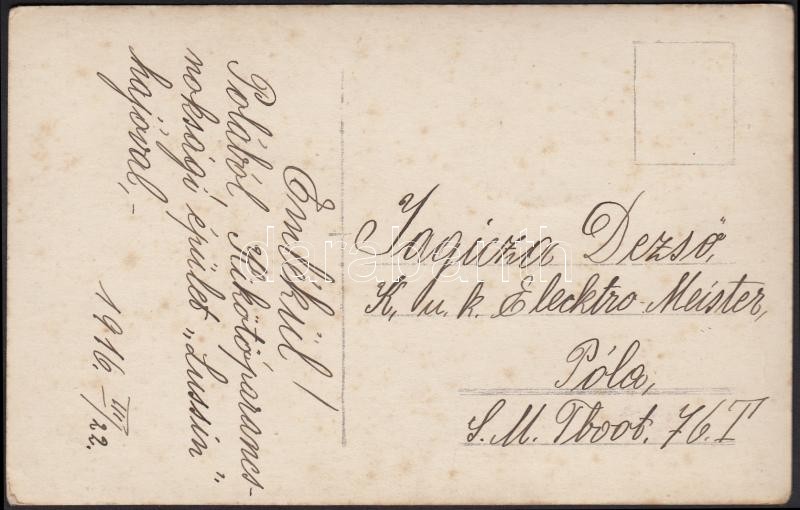 Emlékül!
Polából, Kikötőparancs-
noksági épület „Lussin".
hajóval,-
1916. III/22.
Jagicza Dezső,
K. u. k. Elecktro-Meister,
Póla,
S. M. Tboot. 76.T
darabanth